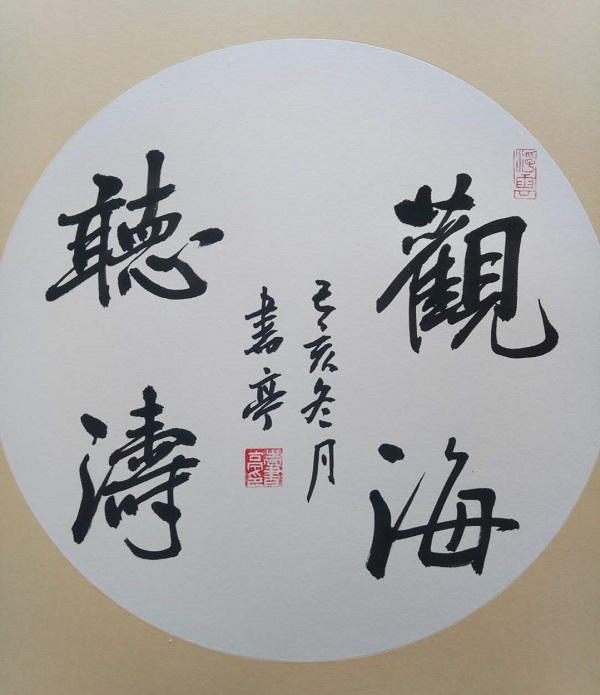 觀海
聽濤
己亥冬月
書亭
浮雲